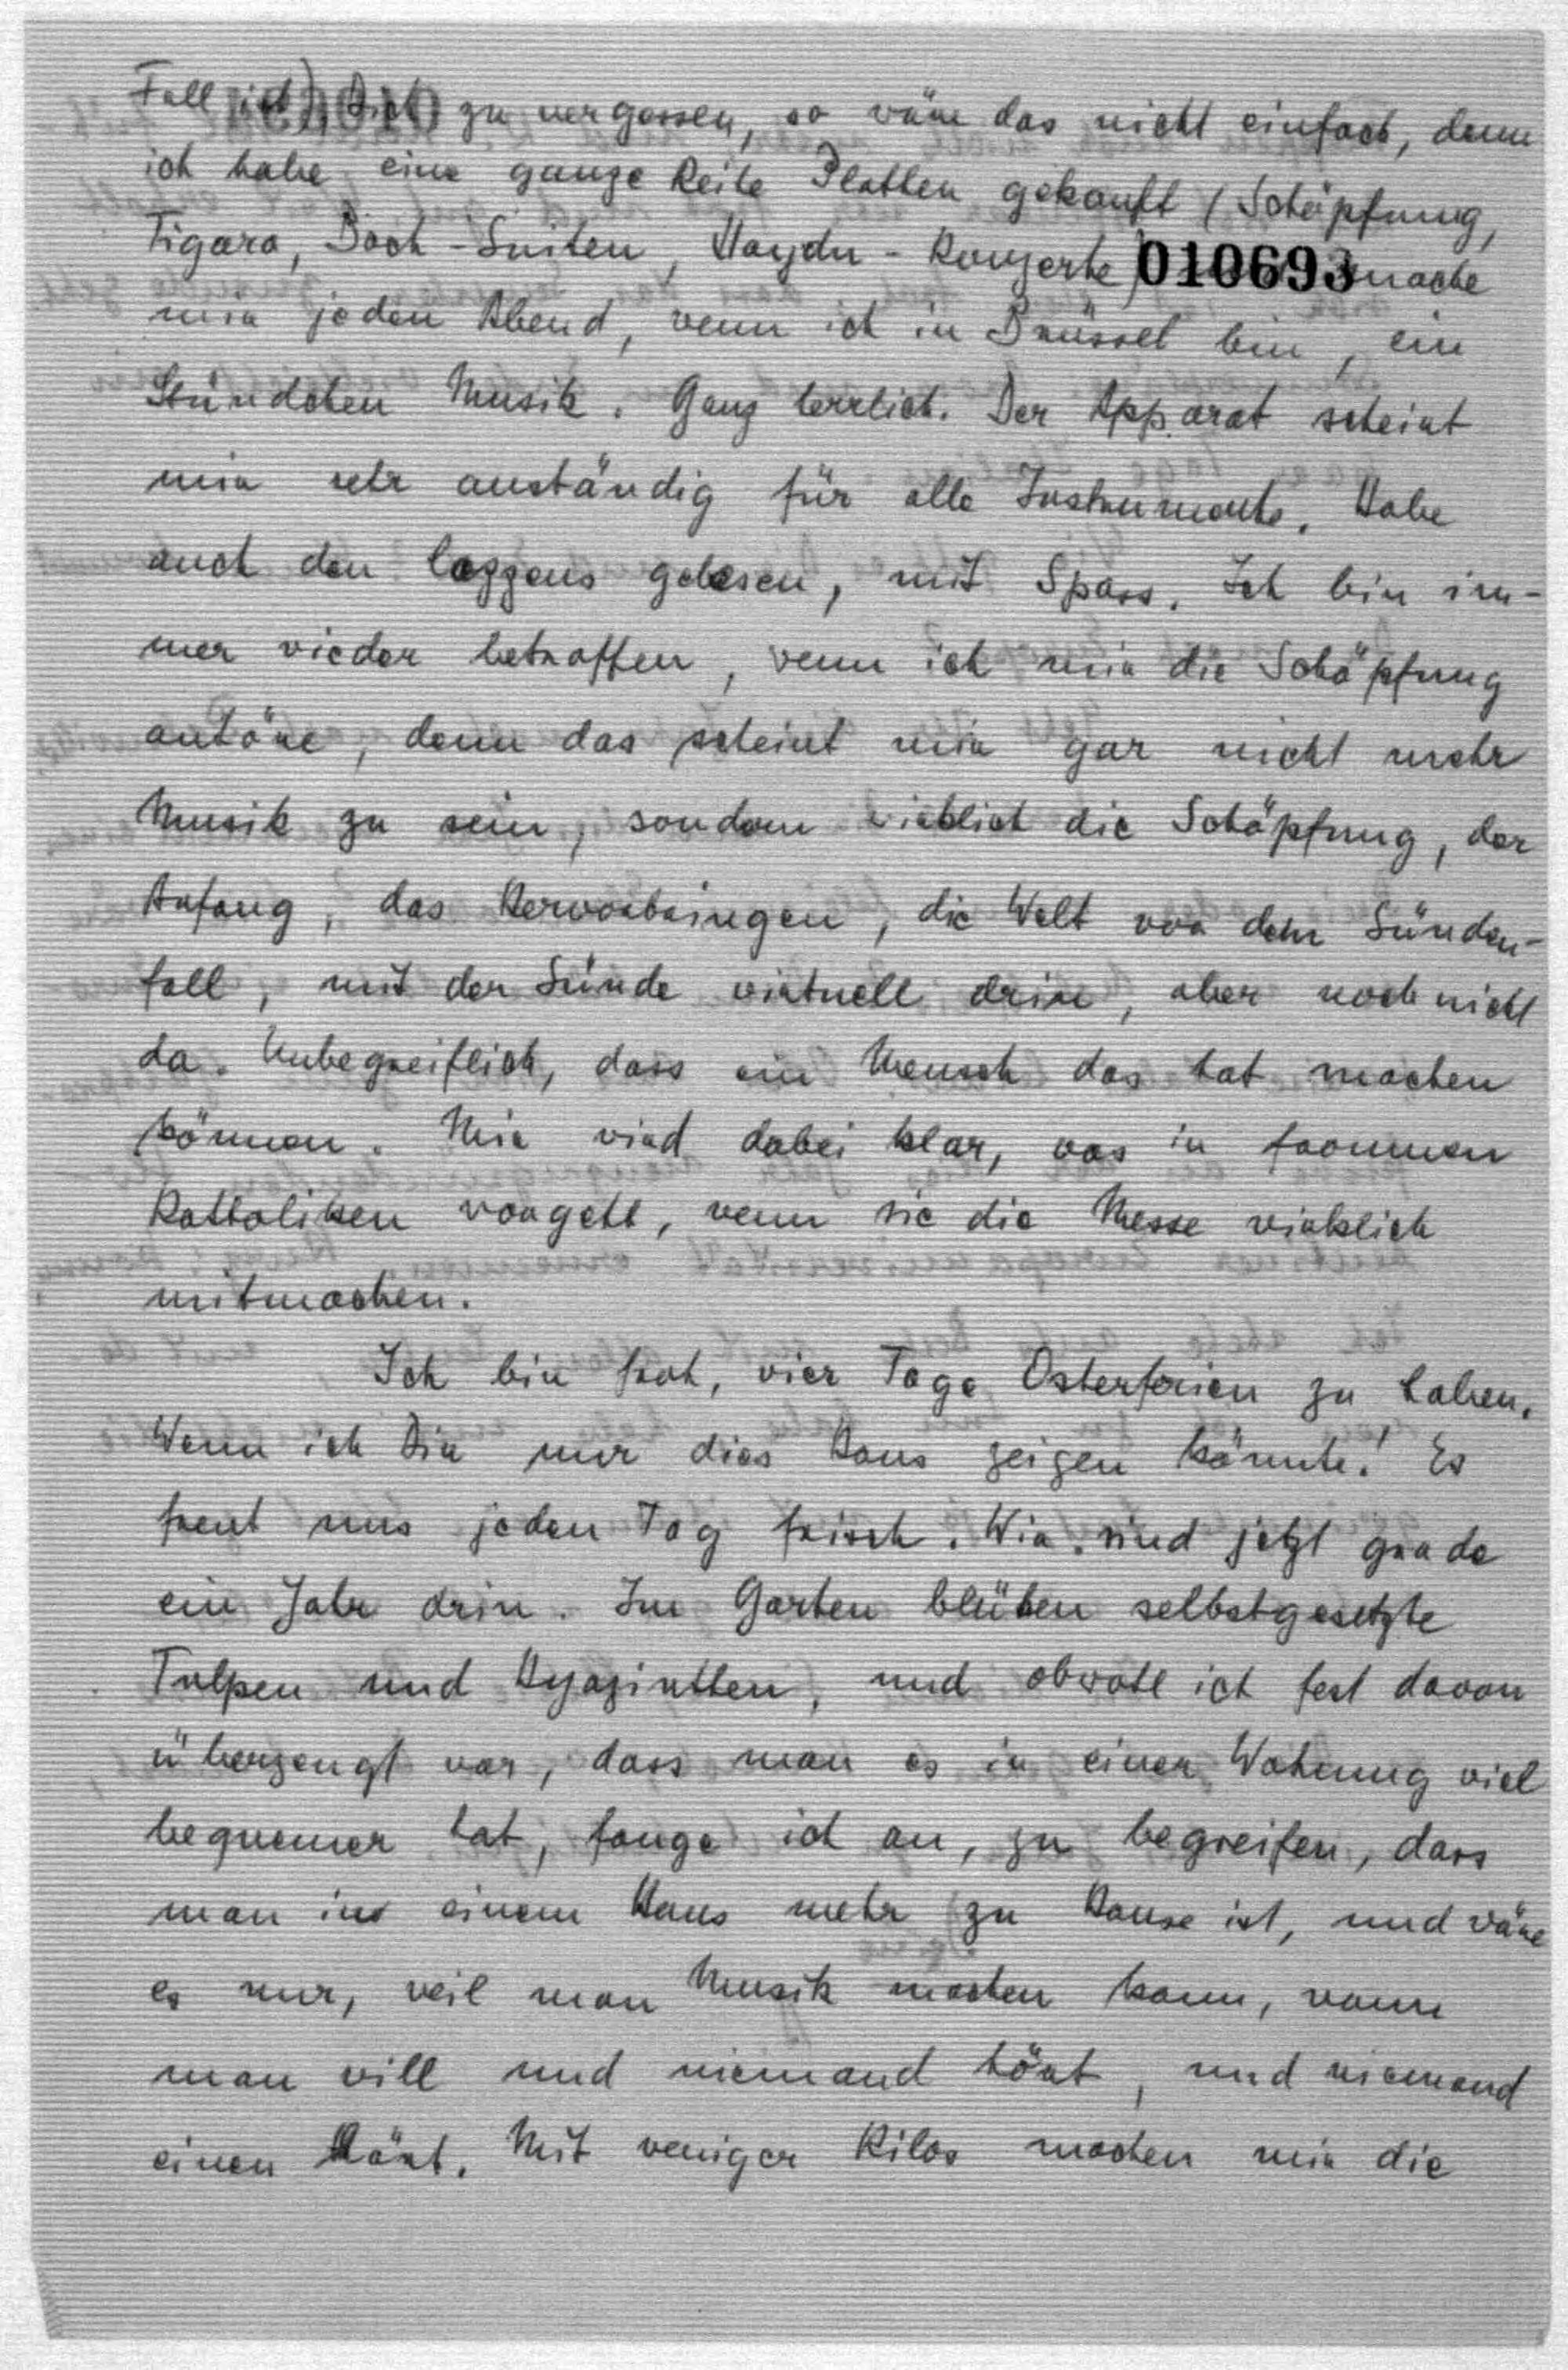 Fall ist) Dich zu vergessen, so wäre das nicht einfach, denn
ich habe eine ganze Reihe Platten gekauft (Schöpfung,
Figaro, Bach-Suiten, Haydn-Konzerte) 010693 mache
mir jeden Abend, wenn ich in Brüssel bin, ein
Stündchen Musik. Ganz herrlich. Der Apparat scheint
mir sehr anständig für alle Instrumente. Habe
auch den Coggens gelesen, mit Spass. Ich bin im-
mer wieder betroffen, wenn ich mir die Schöpfung
antöne, denn das scheint mir gar nicht mehr
Musik zu sein, sondern wirklich die Schöpfung, der
Anfang, das Hervorbringen, die Welt vor dem Sünden-
fall, mit der Sünde virtuell drin, aber noch nicht
da. Unbegreiflich, dass ein Mensch das hat machen
können. Mir wird dabei klar, was in frommen
Katholiken vorgeht, wenn sie die Messe wirklich
mitmachen.
Ich bin froh, vier Tage Osterferien zu haben.
Wenn ich Dir nur dies Haus zeigen könnte! Es
freut uns jeden Tag frisch. Wir sind jetzt grade
ein Jahr drin. Im Garten blühen selbstgesetzte
Tulpen und Hyazinthen, und obwohl ich fest davon
überzeugt war, dass man es in einer Wohnung viel
bequemer hat, fange ich an, zu begreifen, dass
man in einem Haus mehr zu Hause ist, und wäre
es nur, weil man Musik machen kann, wann
man will und niemand hört, und niemand
einen hört. Mit weniger Kilos machen mir die